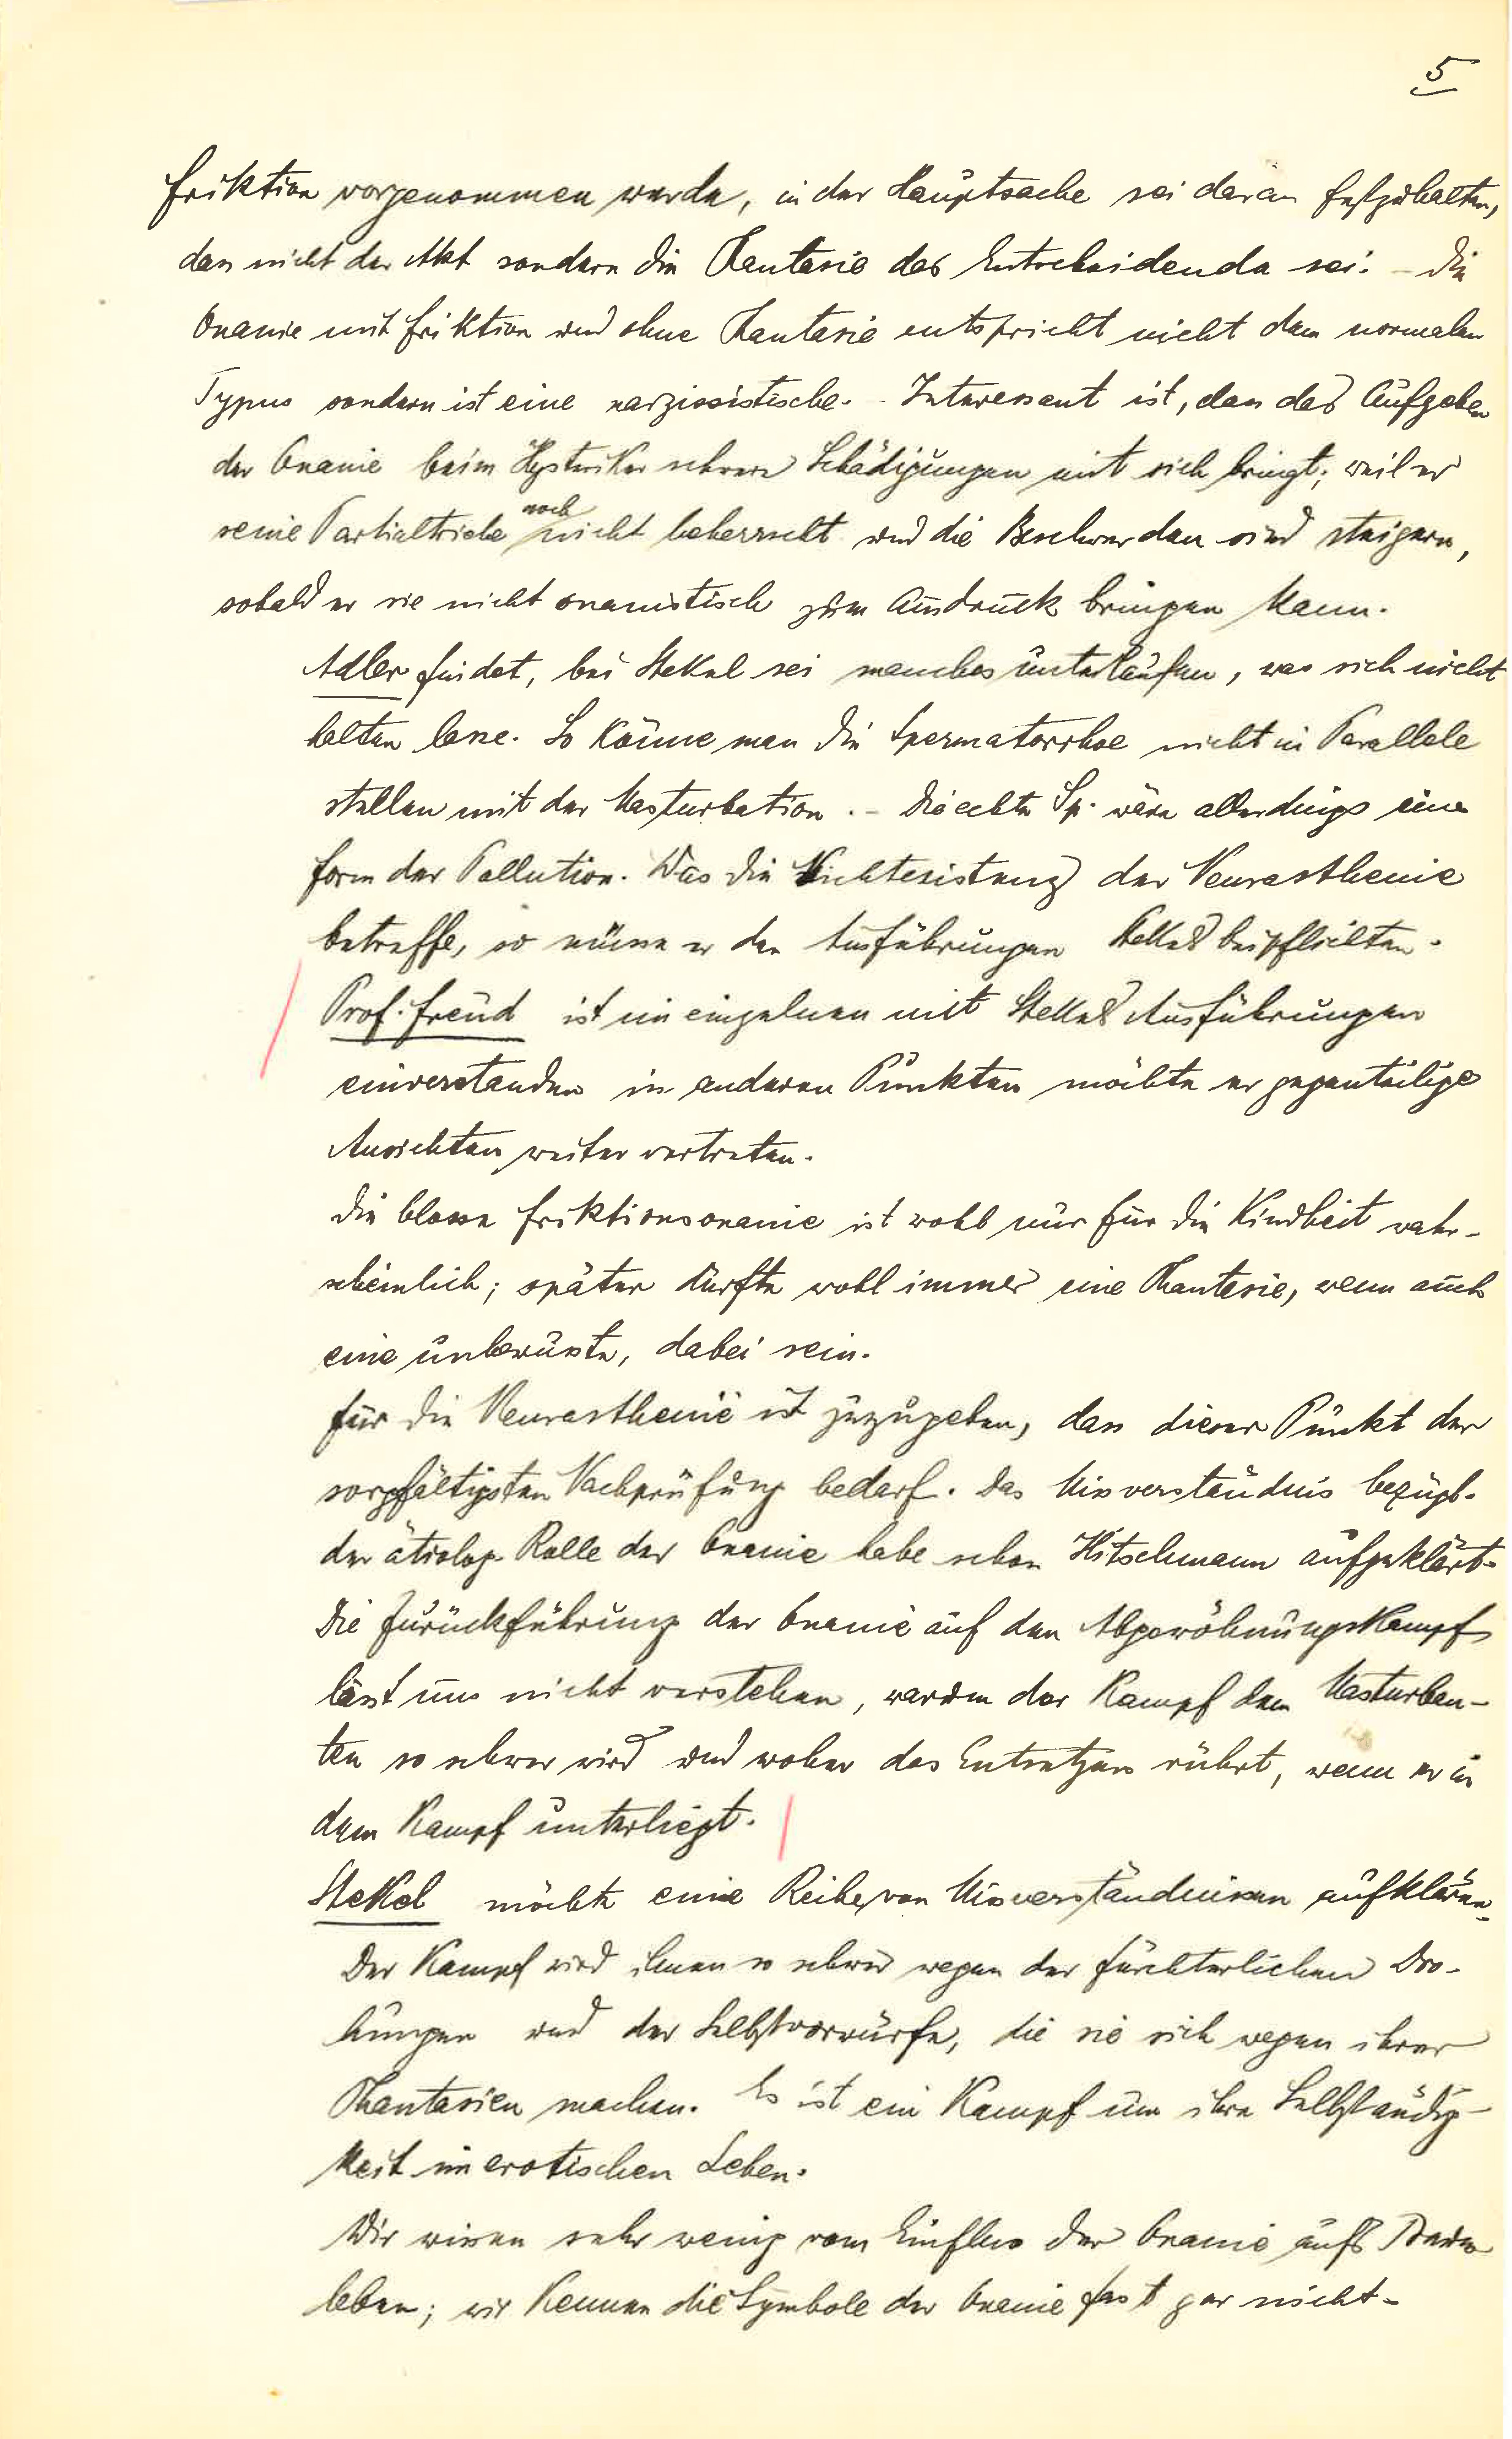 5
Friktion vorgenommen werde, in der Hauptsache sei daran festzuhalten,
dass nicht der Akt sondern die Fantasie das Entscheidende sei. – Die
Onanie mit Friktion und ohne Fantasie entspricht nicht dem normalen
Typus sondern ist eine narzissistische. – Interessant ist, dass das Aufgeben
der Onanie beim Hysteriker schwere Schädigungen mit sich bringt; weil er
seine Partialtriebe noch nicht beherrscht und die Beschwerden sind steigern,
sobald er sie nicht onanistisch zum Ausdruck bringen kann.
Adler findet, bei Stekel sei manches unterlaufen, was sich nicht
halten lasse. So könne man die Spermatorrhoe nicht in Parallele
stellen mit der Masturbation. – Die echte Sp. wäre allerdings eine
Form der Pollution. Was die Nichtexistenz der Neurasthenie
betreffe, so müsse er den Ausführungen Stekels beipflichten.
Prof. Freud ist im einzelnen mit Stekels Ausführungen
einverstanden in anderen Punkten möchte er gegenteilige
Ansichten weiter vertreten.
Die blosse Friktionsonanie ist wohl nur für die Kindheit wahr-
scheinlich; später dürfte wohl immer eine Phantasie, wenn auch
eine unbewusste, dabei sein.
Für die Neurasthenie ist zuzugeben, dass dieser Punkt der
sorgfältigsten Nachprüfung bedarf. Das Missverständnis bezügl.
der ätiolog. Rolle der Onanie habe schon Hitschmann aufgeklärt.
Die Zurückführung der Onanie auf den Abgewöhnungskampf
lässt uns nicht verstehen, warum der Kampf dem Masturban-
ten so schwer wird und woher das Entsetzen rührt, wenn er in
dem Kampf unterliegt.
Stekel möchte eine Reihe von Missverständnissen aufklären.
Der Kampf wird ihnen so schwer wegen der fürchterlichen Dro-
hungen und der Selbstvorwürfe, die sie sich wegen ihrer
Phantasien machen. Es ist ein Kampf um ihre Selbständig-
keit im erotischen Leben.
Wir wissen sehr wenig vom Einfluss der Onanie aufs
leben; wir kennen die Symbole der Onanie fast gar nicht.